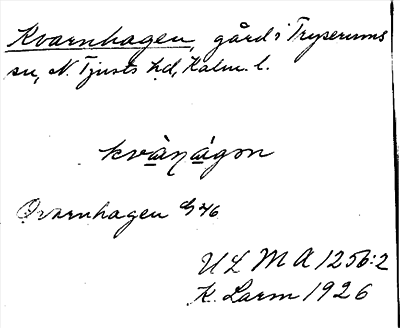 Kvarnhagen, gård i Tryserums
sn, N. Tjusts hd, Kalm. l.
kvàṇágon
Qvarnhagen GS46
U L M A 1256:2
K. Larm 1926